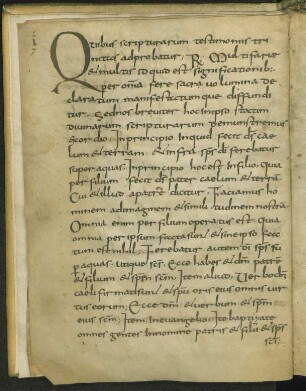 Quibus scripturarum testimoniis tri
nitas adprobatur. R. Multifarie
& multis modis significationib;
per omnia fere sacra volumina de
claratum manifestatumque diffundi
tur. Sed nos breuiter hoc in ipso
diuinarum scripturarum demonstremus
exordio. In principio inquid fecit ds cae
lum et terram. & infra sps di ferebatur
super aquas. In principio hoc est in filio. Quia
per filium fecit ds pater caelum et terra
Cui et illud a patre dicitur. Faciamus ho
minem ad imaginem et similitudinem nostra
Omnia enim per filium operatus est. Quia
omnia per ipsum facta sunt et sine ipso factum
est nihil. Ferebatur autem di sps su
p aquas. utique scs. Ecce habes et dm patre
et filium et spm scm. Item aliut. Verbo dni
caeli firmati sunt et spu oris eius omnis uir
tus eorum. Ecce dm et uerbum et spm
eius scm. Item in euangelio. Ite baptizate
omnes gentes in nomine patris et filii et sps
sci